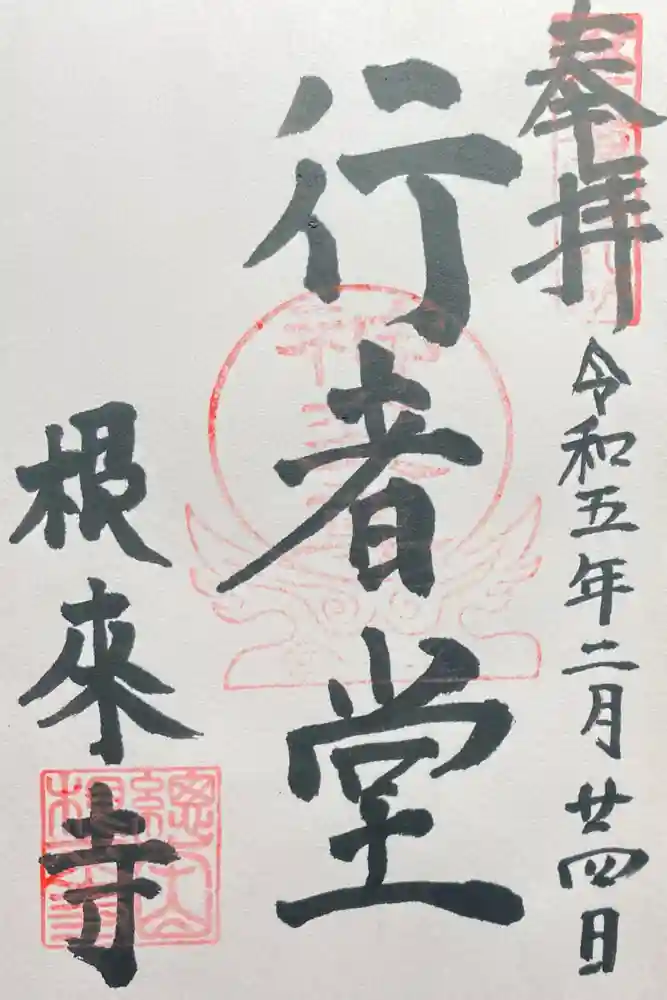 奉拝
令和五年二月廿四日
行者堂
根来寺